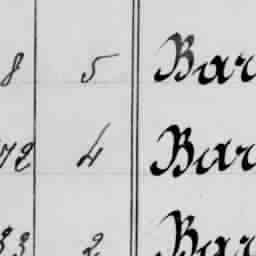 8 5 Bar
72 4 Bar
33 2 Bar